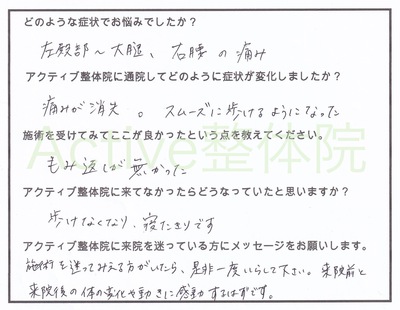 どのような症状でお悩みでしたか？
左殿部～大腿、右腰の痛み
アクティブ整体院に通院してどのように症状が変化しましたか？
痛みが消失。スムーズに歩けるようになった
施術を受けてみてここが良かったという点を教えてください。
Active整体院
もみ返しが無かった
アクティブ整体院に来てなかったらどうなっていたと思いますか？
歩けなくなり、寝たきりです
アクティブ整体院に来院を迷っている方にメッセージをお願いします。
施術を迷ってみえる方がいたら、是非一度いらして下さい。来院前と
来院後の体の変化や動きに感動するはずです。